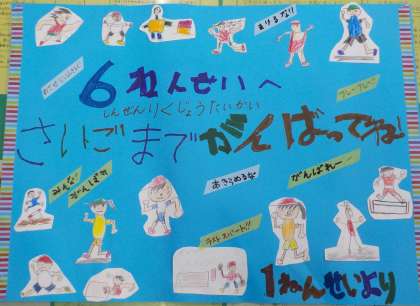 まけるな!!
6ねんせいへ
フレーフレー
しんぜんりくじょうたいかい
さいごまでがんばってね!
みんな
がんばれ
あきらめるな
がんばれー
ラストスパート!!
1ねんせいより